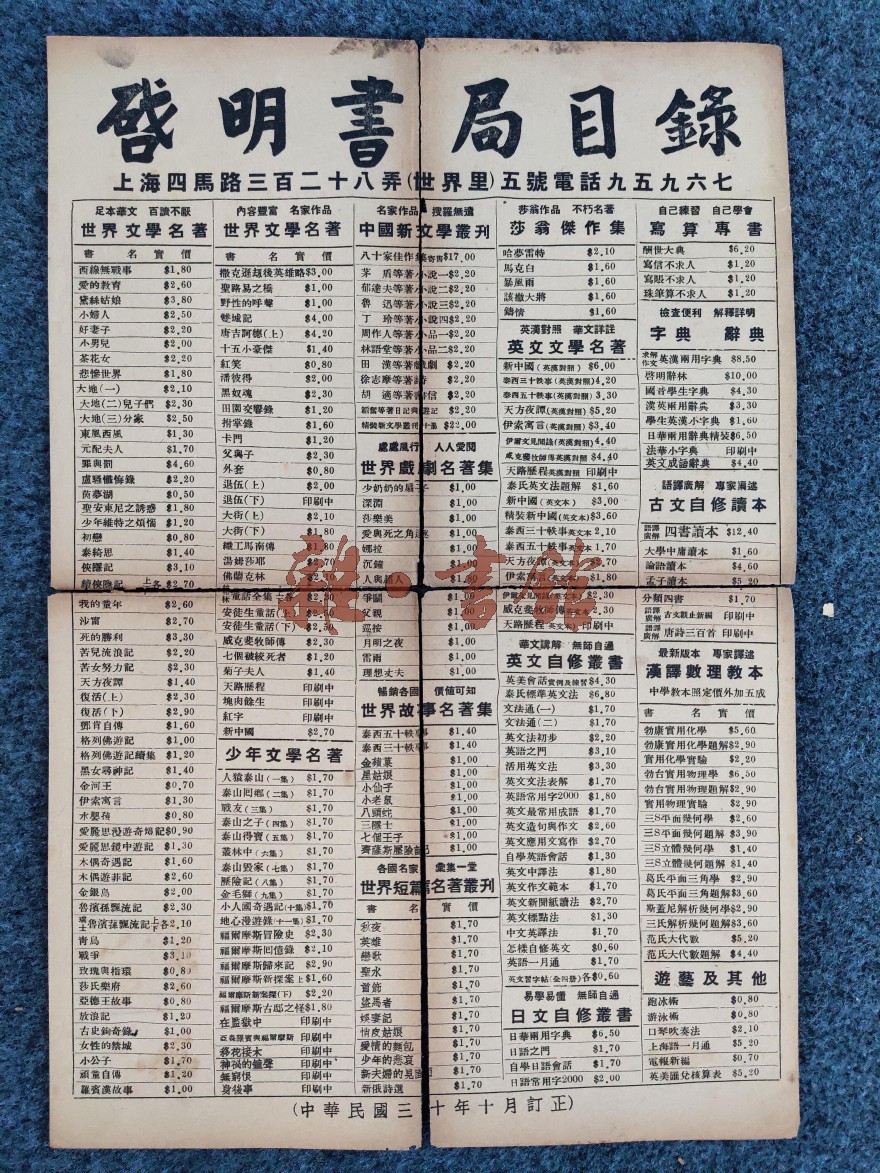 啓明書局目錄
上海四馬路三百二十八弄(世界里)五號電話九五九六七
足本華文 百讀不厭
世界文學名著
書 名 實 價
西線無戰事 $1.80
愛的教育 $2.60
黛絲姑娘 $3.80
小婦人 $2.50
好妻子 $2.20
小男兒 $2.00
茶花女 $2.20
悲慘世界 $1.80
大地(一) $2.10
大地(二)兒子們 $2.30
大地(三)分家 $2.50
東風西風 $1.30
元配夫人 $1.70
罪與罰 $4.60
盧騷懺悔錄 $2.20
茵夢湖 $0.50
聖安東尼之誘惑 $1.80
少年維特之煩惱 $1.20
初戀 $0.80
泰綺思 $1.40
俠隱記 $3.10
續俠隱記 上下各$2.70
我的童年 $2.60
沙寗 $2.70
死的勝利 $3.30
苦兒流浪記 $2.20
苦女努力記 $2.30
天方夜譚 $1.40
復活(上) $2.30
復活(下) $2.90
鄧肯自傳 $1.60
格列佛遊記 $1.00
格列佛遊記續集 $1.20
黑女尋神記 $1.40
金河王 $0.70
伊索寓言 $1.30
水嬰孩 $0.80
愛麗思漫遊奇境記$0.90
愛麗思鏡中遊記 $1.30
木偶奇遇記 $1.60
木偶遊菲記 $2.60
金銀島 $2.00
魯濱孫飄流記 $2.30
瑞士魯濱孫飄流記上下各2.10
青鳥 $1.20
戰爭 $3.10
玫瑰與指環 $0.80
莎氏樂府 $2.60
亞德王故事 $0.80
放浪記 $1.20
古史鉤奇錄 $1.00
女性的禁城 $2.30
小公子 $1.70
頑童自傳 $1.20
羅賓漢故事 $1.00
內容豐富 名家作品
世界文學名著
書 名 實 價
撒克遜刼後英雄略$3.00
聖路易之橋 $1.00
野性的呼聲 $1.00
雙城記 $4.00
唐吉訶德(上) $4.20
十五小豪傑 $1.40
紅笑 $0.80
潘彼得 $2.00
黑奴魂 $2.30
田園交響錄 $1.20
拊掌錄 $1.60
卡門 $1.20
父與子 $2.30
外套 $0.80
退伍(上) $2.00
退伍(下) 印刷中
大街(上) $2.10
大街(下) $1.80
織工馬南傳 $1.80
湯姆莎耶 $2.70
佛蘭克林 $2.10
安徒生童話(上) $2.50
安徒生童話(下) $2.50
威克斐牧師傳 $2.30
七個被絞死者 $1.20
菊子夫人 $1.40
天路歷程 印刷中
塊肉餘生 印刷中
紅字 印刷中
新中國 $2.70
少年文學名著
人猿泰山(一集) $1.70
泰山囘鄉(二集) $1.70
戰友(三集) $1.70
泰山之子(四集) $1.70
泰山得寶(五集) $1.70
叢林中(六集) $1.70
泰山毀家(七集) $1.70
歷險記(八集) $1.70
金毛獅(九集) $1.70
小人國奇遇記(十集)$1.70
地心漫遊錄(十一集)$1.70
福爾摩斯冒險史 $2.30
福爾摩斯囘憶錄 $2.10
福爾摩斯歸來記 $2.90
福爾摩斯新探案上$1.60
福爾摩斯新探案(下) $2.20
福爾摩斯古邸之怪$1.80
在監獄中 印刷中
亞森羅賓與福爾摩斯 印刷中
移花接木 印刷中
神禍的鐘聲 印刷中
無窮恨 印刷中
身後事 印刷中
名家作品 搜羅無遺
中國新文學叢刊
八十家佳作集寄售$17.00
茅盾等著小說一$2.20
郁達夫等著小說二$2.20
魯迅等著小說三$2.20
丁玲等著小說四$2.20
周作人等著小品一$2.20
林語堂等著小品二$2.20
田漢等著戲劇 $2.20
徐志摩等著詩 $2.20
胡適等著書信 $2.20
韜奮等著日記與遊記 $2.20
精裝新文學叢刊十集 $22.00
處處風行 人人愛閱
世界戲劇名著集
少奶奶的扇子 $1.00
深淵 $1.00
莎樂美 $1.00
愛與死之角逐 $1.00
娜拉 $1.00
沉鐘 $1.00
人與超人 $1.80
爭鬭 $1.00
父親 $1.00
巡按 $1.00
月明之夜 $1.00
雷雨 $1.00
理想丈夫 $1.00
暢銷各國 價值可知
世界故事名著集
泰西五十軼事 $1.40
泰西三十軼事 $1.40
金蘋菓 $1.00
星姑娘 $1.00
小仙子 $1.00
小老鼠 $1.00
八頭蛇 $1.00
三隱士 $1.00
七個王子 $1.00
齊薩斯歷險記 $1.00
各國名家 彙集一堂
世界短篇名著叢刊
書 名 實 價
秋夜 $1.70
英雄 $1.70
戀歌 $1.70
聖水 $1.70
首飾 $1.70
盜馬者 $1.70
娛妻記 $1.70
俏皮姑娘 $1.70
愛情的麵包 $1.70
少年的悲哀 $1.70
新夫婦的見面 $1.70
新俄詩選 $1.70
莎翁作品 不朽名著
莎翁傑作集
哈夢雷特 $2.10
馬克白 $1.60
暴風雨 $1.60
該撒大將 $1.60
鑄情 $1.60
英漢對照 華文詳註
英文文學名著
新中國(英漢對照) $6.00
泰西三十軼事(英漢對照)4.20
泰西五十軼事(英漢對照) 3.30
天方夜譚(英漢對照) $5.20
伊索寓言(英漢對照) $3.40
伊爾文見聞錄(英漢對照) 4.40
威克斐牧師傳英漢對照$4.40
天路歷程英漢對照 印刷中
泰氏英文法題解 $1.60
新中國(英文本) $3.00
精裝新中國(英文本)$3.60
泰西三十軼事英文本 2.10
泰西五十軼事英文本 1.70
天方夜譚(英文本) $2.70
伊索寓言(英文本) $1.80
伊爾文見聞錄(英文本) $2.30
威克斐牧師傳(英文本) $2.30
天路歷程(英文本) 印刷中
華文講解 無師自通
英文自修叢書
英美會話實例及練習$4.30
泰氏標準英文法 $6.80
文法通(一) $1.70
文法通(二) $1.70
英文法初步 $2.20
英語之門 $3.10
活用英文法 $3.30
英文文法表解 $1.70
英語常用字2000 $1.80
英文最常用成語 $1.70
英文造句與作文 $2.60
英文應用文寫作 $2.70
自學英語會話 $1.30
英文中譯法 $1.80
英文作文範本 $1.70
英文新聞紙讀法 $2.70
英文標點法 $1.30
中文英譯法 $1.70
怎樣自修英文 $0.60
英語一月通 $1.70
英文習字帖(全四册)各$0.60
易學易懂 無師自通
日文自修叢書
日華兩用字典 $6.50
日語之門 $1.70
自學日語會話 $1.70
日語常用字2000 $2.00
自己練習 自己學會
寫算專書
酬世大典 $6.20
寫信不求人 $1.20
寫賬不求人 $1.20
珠筆算不求人 $1.20
檢查便利 解釋詳明
字典 辭典
求解作文英漢兩用字典 $8.50
啓明辭林 $10.00
國音學生字典 $4.30
漢英兩用辭典 $3.30
學生英漢小字典 $1.60
日華兩用辭典精裝$6.50
法華小字典 印刷中
英文成語辭典 $4.40
語譯廣解 專家闡述
古文自修讀本
語譯廣解 四書讀本 $12.40
大學中庸讀本 $1.60
論語讀本 $4.60
孟子讀本 $5.20
分類四書 $1.70
語譯廣解 古文觀止新編 印刷中
語譯廣解 唐詩三百首 印刷中
最新版本 專家譯述
漢譯數理教本
中學教本照定價外加五成
書 名 實 價
勃康實用化學 $5.60
勃康實用化學題解$2.90
實用化學實驗 $2.20
勃台實用物理學 $6.50
勃台實用物理題解$2.90
實用物理實驗 $2.90
三S平面幾何學 $1.40
三S平面幾何題解 $3.90
三S立體幾何學 $1.40
三S立體幾何題解 $1.40
葛氏平面三角學 $2.90
葛氏平面三角題解$3.60
斯蓋尼解析幾何學$2.90
三氏解析幾何題解$3.60
范氏大代數 $5.20
范氏大代數題解 $4.40
遊藝及其他
跑泳術 $0.80
游泳術 $0.80
口琴吹奏法 $2.10
上海語一月通 $5.20
電報新編 $0.70
英美匯兌核算表 $5.20
(中華民國三十年十月訂正)
雜·書館